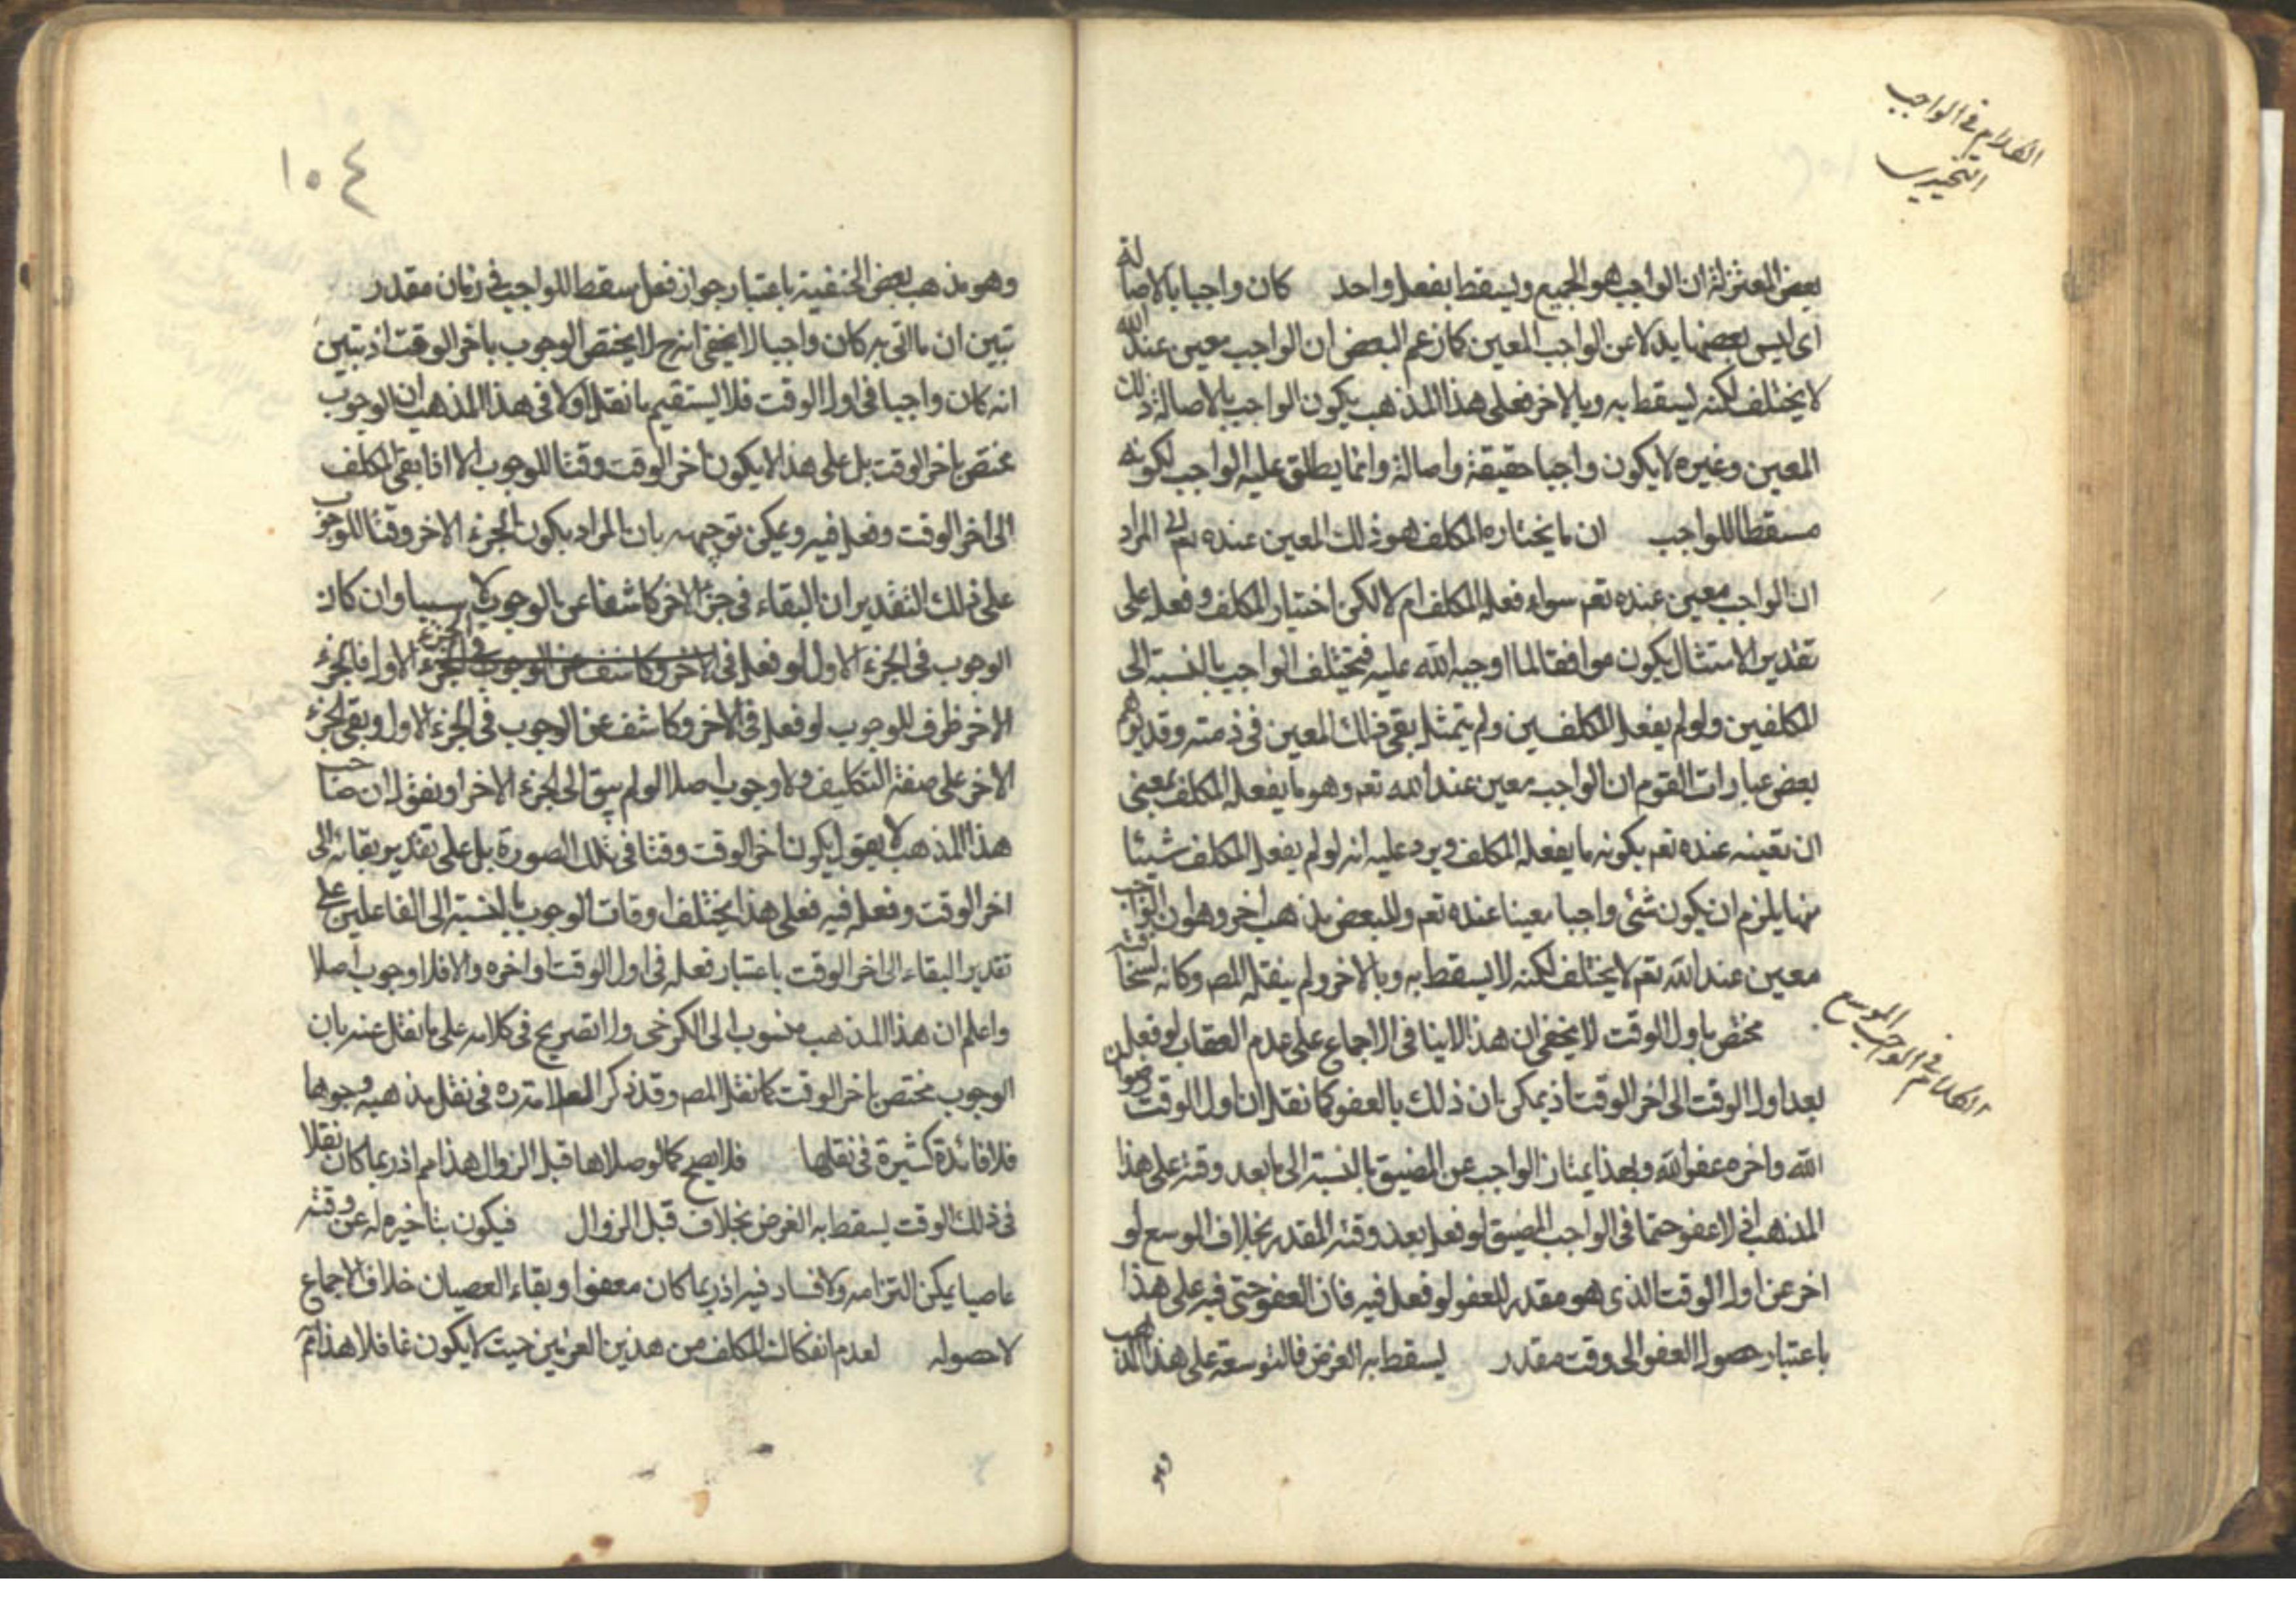 الكلام في الواجب
التخييري
بعض المعتزلة ان الواجب هو الجميع ويسقط بفعل واحد كان واجبا بالاصالة
اى ليس بعضها بدلا عن الواجب المعين كما زعم البعض ان الواجب معين عند الله
لا يختلف لكنه يسقط به وبالاخر فعلى هذا المذهب يكون الواجب بالاصالة ذلك
المعين وغيره لا يكون واجبا حقيقة واصالة وانما يطلق عليه الواجب لكونه
مسقطا للواجب ان ما يختاره المكلف هو ذلك المعين عنده تعم المراد
ان الواجب معين عنده تعم سواء فعله المكلف ام لا لكن اختيار المكلف وفعله على
تقدير الامتثال يكون موافقا لما اوجبه الله عليه فيختلف الواجب بالنسبة الى
المكلفين ولو لم يفعل المكلفين ولم يتمثل بقى ذلك المعين فى ذمته وقد يوهم
بعض عبارات القوم ان الواجب معين عند الله تعم وهو ما يفعله المكلف بمعنى
ان تعينه عنده تعم بكونه ما يفعله المكلف ويرد عليه انه لو لم يفعل المكلف شيئا
منها يلزم ان يكون شئ واجبا معينا عنده تعم وللبعض مذهب اخر وهو ان الواجب
معين عند الله تعم لا يختلف لكنه لا يسقط به وبالاخر ولم ينقله المص وكانه لسخافته
الكلام في الواجب الموسع
مختص باول الوقت لا يخفى ان هذا لا ينافى الاجماع على عدم العقاب لو فعل
بعد اول الوقت الى اخر الوقت اذ يمكن ان ذلك بالعفو كما نقل ان اول الوقت رضوان
الله واخره عفو الله وبهذا يمتاز الواجب عن المضيق بالنسبة الى ما بعد وقته على هذا
المذهب اذ لا عفو حتما فى الواجب المضيق لو فعل بعد وقته المقدر بخلاف الموسع لو
اخر عن اول الوقت الذى هو مقدر للعفو لو فعل فيه فان العفو حتى فيه على هذا
باعتبار حصول العفو الى وقت مقدر يسقط به الفرض فالتوسعة على هذا المذهب
وهو
١٠٤
وهو مذهب بعض الحنفية باعتبار جواز فعل مسقط للواجب فى زمان مقدر
تبين ان ما اتى به كان واجبا لا يخفى انه ح لا يختص الوجوب باخر الوقت اذ تبين
انه كان واجبا فى اول الوقت فلا يستقيم ما نقل اولا فى هذا المذهب ان الوجوب
مختص باخر الوقت بل على هذا لا يكون اخر الوقت وقتا للوجوب الا اذا بقى المكلف
الى اخر الوقت وفعل فيه ويمكن توجيهه بان المراد بكون الجزء الاخر وقتا للوجوب
على ذلك التقدير ان البقاء فى جزء الاخر كاشفا عن الوجوب لا سببا وان كان
الوجوب فى الجزء الاول لو فعل فى الاخر وكاشف عن الوجوب فى الجزء الاول فالجزء
الاخر ظرف للوجوب لو فعل فى الاخر وكاشف عن الوجوب فى الجزء الاول وبقى الجزء
الاخر على صفة التكليف ولا وجوب اصلا لو لم يبق الى الجزء الاخر او نقول ان صاحب
هذا المذهب لا يقول بكون اخر الوقت وقتا فى تلك الصورة بل على تقدير بقائه الى
اخر الوقت وفعله فيه فعلى هذا يختلف اوقات الوجوب بالنسبة الى الفاعلين على
تقدير البقاء الى اخر الوقت باعتبار فعله فى اول الوقت او اخره والا فلا وجوب اصلا
واعلم ان هذا المذهب منسوب الى الكرخى ولا تصريح فى كلامه على ما نقل عنه بان
الوجوب مختص باخر الوقت كما نقل المص وقد ذكر العلامة ره فى نقل مذهبه وجوها
فلا فائدة كثيرة فى نقلها فلا يصح كما لو صلاها قبل الزوال هذا مم اذ ربما كان نقلا
فى ذلك الوقت يسقط به الفرض بخلاف قبل الزوال فيكون بتاخيره له عن وقته
عاصيا يمكن التزامه ولا فساد فيه اذ ربما كان معفوا وبقاء العصيان خلاف الاجماع
لا حصوله لعدم انفكاك المكلف من هذين العزمين حيث لا يكون غافلا هذا تم